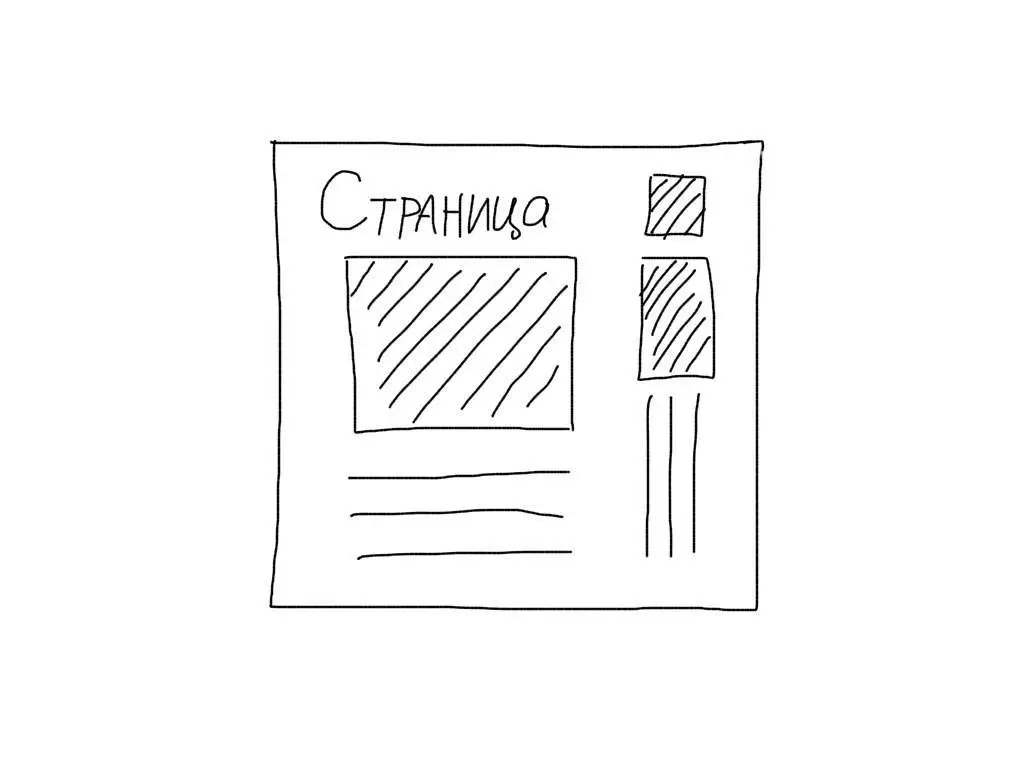 Страница